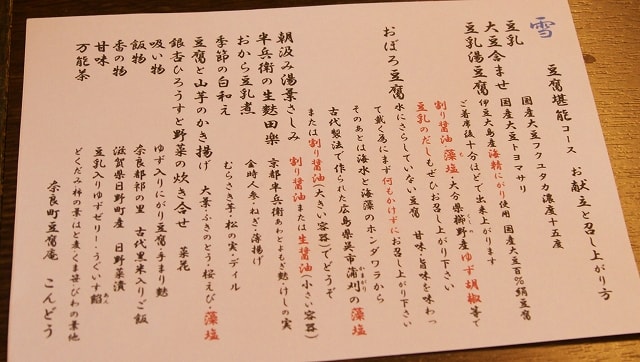 雪 豆腐堪能コース お献立と召し上がり方
豆乳 国産大豆フクユタカ濃度十五度
大豆含ませ 国産大豆トヨマサリ
豆乳湯豆腐 伊豆大島産海精にがり使用 国産大豆百%絹豆腐
ご着席後十分ほどで出来上がります
割り醤油 藻塩・大分県櫛野産ゆず胡椒等で
豆乳のだしもぜひお召し上がり下さい
おぼろ豆腐 水にさらしていない豆腐 甘味・旨味を味わっ
て戴く為にまず何もかけずにお召し上がり下さい
そのあとは海水と海藻のホンダワラから
古代製法で作られた広島県呉市蒲刈の藻塩
または割り醤油(大きい容器)でどうぞ
朝汲み湯葉さしみ 割り醤油または生醤油(小さい容器)
半兵衛の生麩田楽 京都半兵衛あわとよもぎ麩・けしの実
おから豆乳煮 金時人参・ねぎ・薄揚げ
季節の白和え むらさき芋・松の実・ディル
豆腐と山芋のかき揚げ 大葉・ふきのとう・桜えび・藻塩
銀杏ひろうすと野菜の炊き合せ 菜花
吸い物 ゆず入りにがり豆腐・手まり麩
飯物 奈良都祁の里 古代里米入りご飯
香の物 滋賀県日野町産 日野菜漬
甘味 豆乳入りゆずゼリー・うぐいす餡
万能茶 どくだみ柿の葉はと麦くま笹びわの葉他
奈良町豆腐庵 こんどう